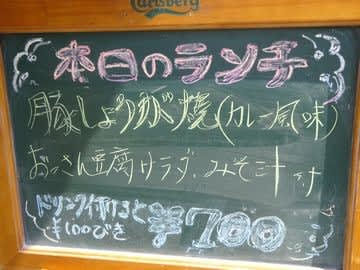 Carlsberg
本日のランチ
豚しょうが焼(カレー風味)
おっさん豆腐サラダ、みそ汁付
ドリンク付けると
¥100びき
¥700